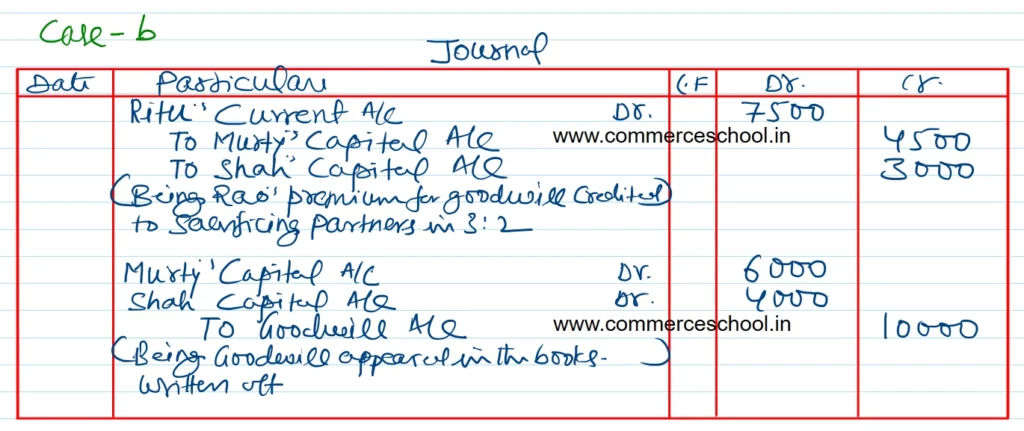 Case - b
Journal
Date Particulars L.F Dr. Cr.
Ritu's Current A/c Dr. 7500
To Murty's Capital A/c www.commerceschool.in 4500
To Shah' Capital A/c 3000
(Being Rao's premium for goodwill Credited)
to Sacrificing Partners in 3:2
Murty' Capital A/c Dr. 6000
Shah Capital A/c Dr. 4000
To Goodwill A/c www.commerceschool.in 10000
(Being Goodwill appeared in the books-)
written off